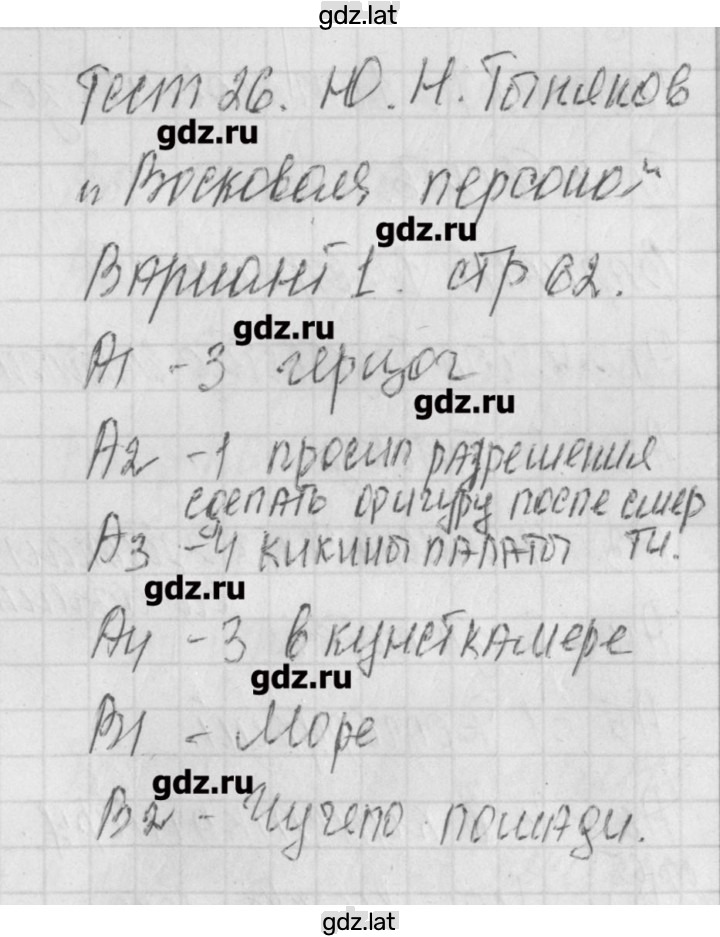 gdz.lat
Тест 26. Ю. Н. Тынянов
gdz.ru
"Восковая персона"
gdz.ru
Вариант 1. стр 62.
gdz.ru
А1 - 3 герцог
gdz.ru
А2 - 1 просил разрешения
сделать фигуру после смер
А3 - 4 кикины палаты ти.
gdz.ru
А4 - 3 в кунсткамере
gdz.ru
В1 - Море
gdz.ru
В2 - Чучело лошади.
gdz.lat